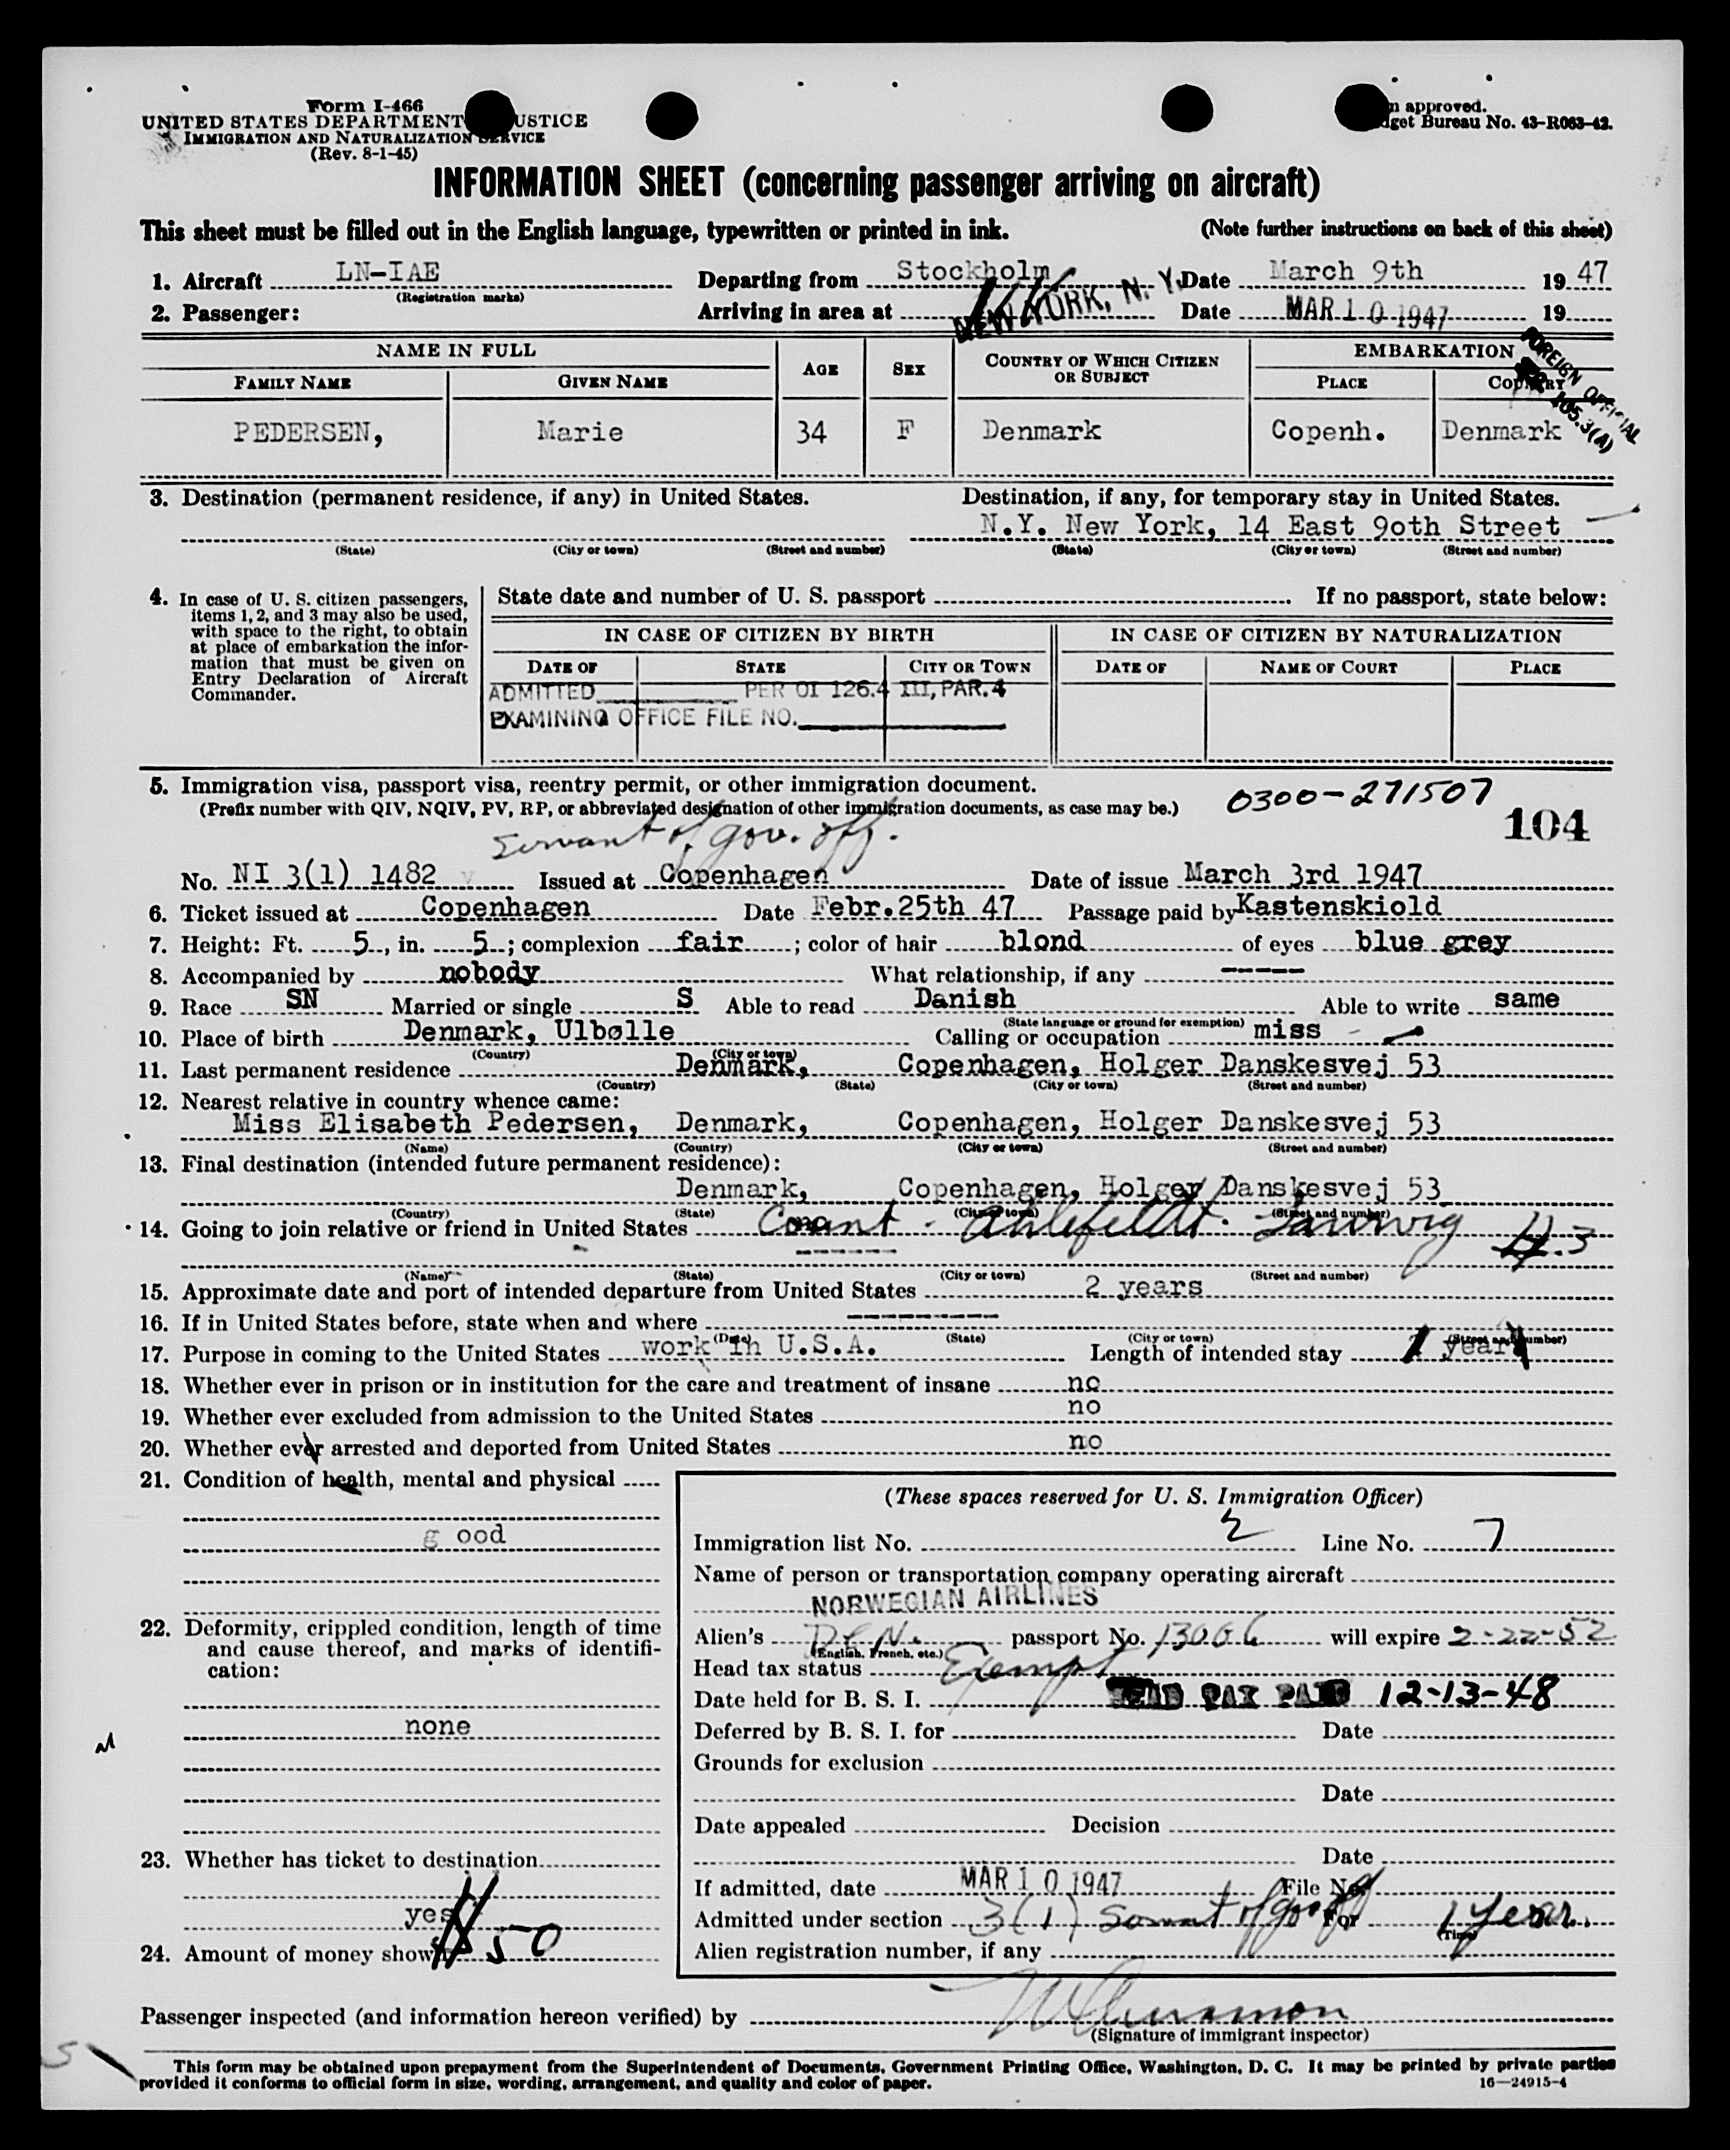 Form I-466
UNITED STATES DEPARTMENT USTICE
IMMIGRATION AND NATURALIZATION SERVICE
(Rev. 8-1-45)
n approved.
dget Bureau No. 43-R063-42.
INFORMATION SHEET (concerning passenger arriving on aircraft)
This sheet must be filled out in the English language, typewritten or printed in ink. (Note further instructions on back of this sheet)
1. Aircraft LN-IAE Departing from Stockholm Date March 9th 19 47
(Registration marks)
2. Passenger: Arriving in area at NEW YORK, N. Y. Date MAR 10 1947 19
FOREIGN OFFICIAL
105.3(A)
NAME IN FULL AGE SEX COUNTRY OF WHICH CITIZEN OR SUBJECT EMBARKATION
FAMILY NAME GIVEN NAME PLACE COUNTRY
PEDERSEN, Marie 34 F Denmark Copenh. Denmark
3. Destination (permanent residence, if any) in United States. Destination, if any, for temporary stay in United States.
N.Y. New York, 14 East 9oth Street
(State) (City or town) (Street and number) (State) (City or town) (Street and number)
4. In case of U. S. citizen passengers, items 1, 2, and 3 may also be used, with space to the right, to obtain at place of embarkation the information that must be given on Entry Declaration of Aircraft Commander.
State date and number of U. S. passport If no passport, state below:
IN CASE OF CITIZEN BY BIRTH IN CASE OF CITIZEN BY NATURALIZATION
DATE OF STATE CITY OR TOWN DATE OF NAME OF COURT PLACE
ADMITTED PER OI 126.4 III, PAR. 4
EXAMINING OFFICE FILE NO.
5. Immigration visa, passport visa, reentry permit, or other immigration document.
(Prefix number with QIV, NQIV, PV, RP, or abbreviated designation of other immigration documents, as case may be.)
0300-271507
104
Servant of gov. off.
No. NI 3(1) 1482 Issued at Copenhagen Date of issue March 3rd 1947
6. Ticket issued at Copenhagen Date Febr.25th 47 Passage paid by Kastenskiold
7. Height: Ft. 5, in. 5; complexion fair; color of hair blond of eyes blue grey
8. Accompanied by nobody What relationship, if any -----
9. Race SN Married or single S Able to read Danish Able to write same
(State language or ground for exemption)
10. Place of birth Denmark, Ulbølle Calling or occupation miss -
(Country) (City or town)
11. Last permanent residence Denmark, Copenhagen, Holger Danskesvej 53
(Country) (State) (City or town) (Street and number)
12. Nearest relative in country whence came:
Miss Elisabeth Pedersen, Denmark, Copenhagen, Holger Danskesvej 53
(Name) (Country) (City or town) (Street and number)
13. Final destination (intended future permanent residence):
Denmark, Copenhagen, Holger Danskesvej 53
(Country) (State) (City or town) (Street and number)
14. Going to join relative or friend in United States Count - Ahlefeldt-Laurvig
(Name) (State) (City or town) (Street and number)
15. Approximate date and port of intended departure from United States 2 years
16. If in United States before, state when and where -----------
(Date) (State) (City or town) (Street and number)
17. Purpose in coming to the United States work in U.S.A. Length of intended stay 1 year
18. Whether ever in prison or in institution for the care and treatment of insane no
19. Whether ever excluded from admission to the United States no
20. Whether ever arrested and deported from United States no
21. Condition of health, mental and physical
g ood
22. Deformity, crippled condition, length of time and cause thereof, and marks of identification:
none
23. Whether has ticket to destination
yes
24. Amount of money shown $50
(These spaces reserved for U. S. Immigration Officer)
Immigration list No. 2 Line No. 7
Name of person or transportation company operating aircraft
NORWEGIAN AIRLINES
Alien's DEN. passport No. 13066 will expire 2-22-52
(English, French, etc.)
Head tax status Exempt
Date held for B. S. I. HEAD TAX PAID 12-13-48
Deferred by B. S. I. for Date
Grounds for exclusion
Date
Date appealed Decision
Date
If admitted, date MAR 10 1947 File No.
Admitted under section 3(1) Servant of gov off For 1 year.
(Time)
Alien registration number, if any
Passenger inspected (and information hereon verified) by
(Signature of immigrant inspector)
This form may be obtained upon prepayment from the Superintendent of Documents, Government Printing Office, Washington, D. C. It may be printed by private parties
provided it conforms to official form in size, wording, arrangement, and quality and color of paper.
16—24915-4